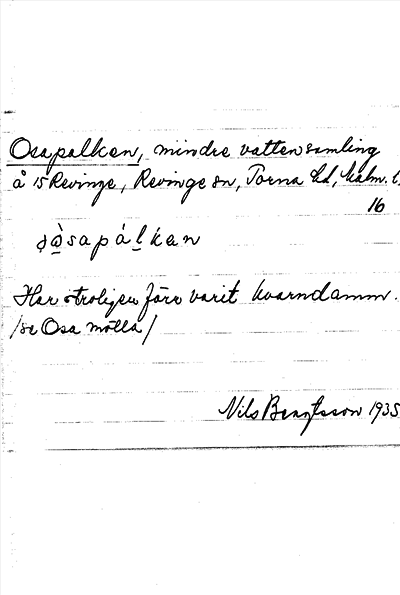 Osapalken, mindre vattensamling
å 15 Revinge, Revinge sn, Torna hd, Malm. l.
16
sapálkan
Har troligen förr varit kvarndamm.
/se Osa mölla/
Nils Bengtsson 1935